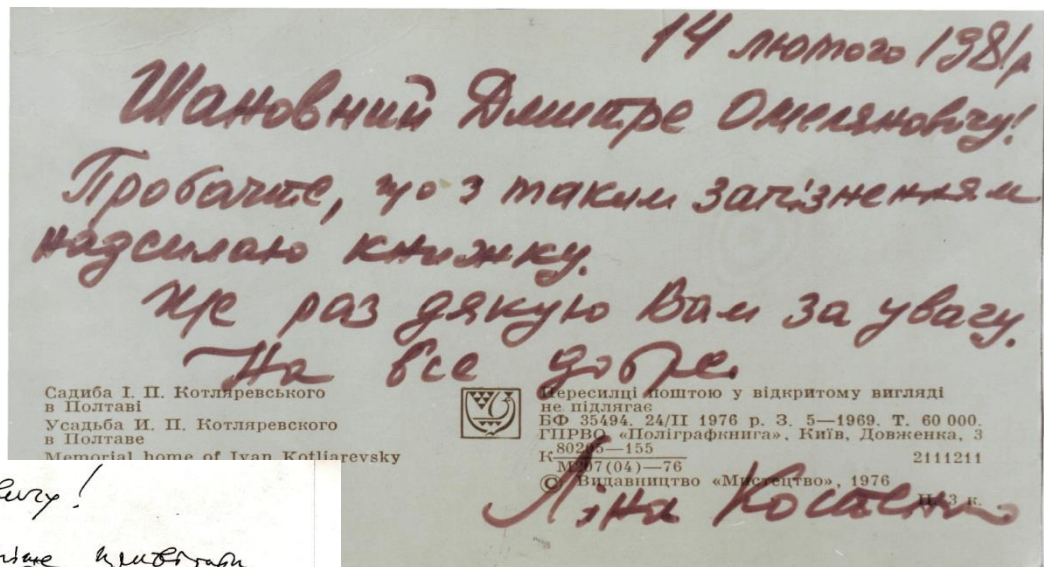 14 лютого 1981 р
Шановний Дмитре Омеляновичу!
Пробачте, що з таким запізненням
надсилаю книжку.
Ще раз дякую Вам за увагу.
На все добре.
Ліна Костенко
Садиба І. П. Котляревського
в Полтаві
Усадьба И. П. Котляревского
в Полтаве
Memorial home of Ivan Kotliarevsky
Пересилці поштою у відкритому вигляді
не підлягає
БФ 35494. 24/II 1976 р. З. 5—1969. Т. 60 000.
ГПРВО «Поліграфкнига», Київ, Довженка, 3
К 80205—155
М207(04)—76
2111211
© Видавництво «Мистецтво», 1976
3 к.